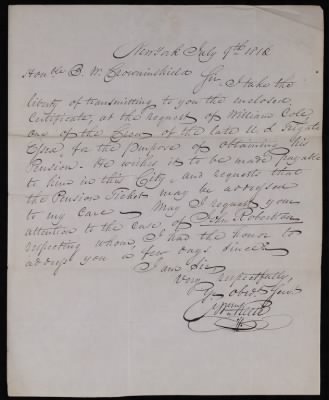 New York July 9th 1818
Honble B. W. Crowninshield
Sir, I take the
liberty of transmitting to you the enclosed
Certificate, at the request of William Cole,
one of the Crew of the late U. S. Frigate
Essex, for the purpose of obtaining his
Pension. He wishes it to be made payable
to him in this City, and requests that
the Pension Ticket may be addressed
to my Care - May I request your
attention to the case, of John Robertson
respecting whom, I had the honor to
address you a few days since
I am Sir
Very respectfully,
Yr Obedt Servt